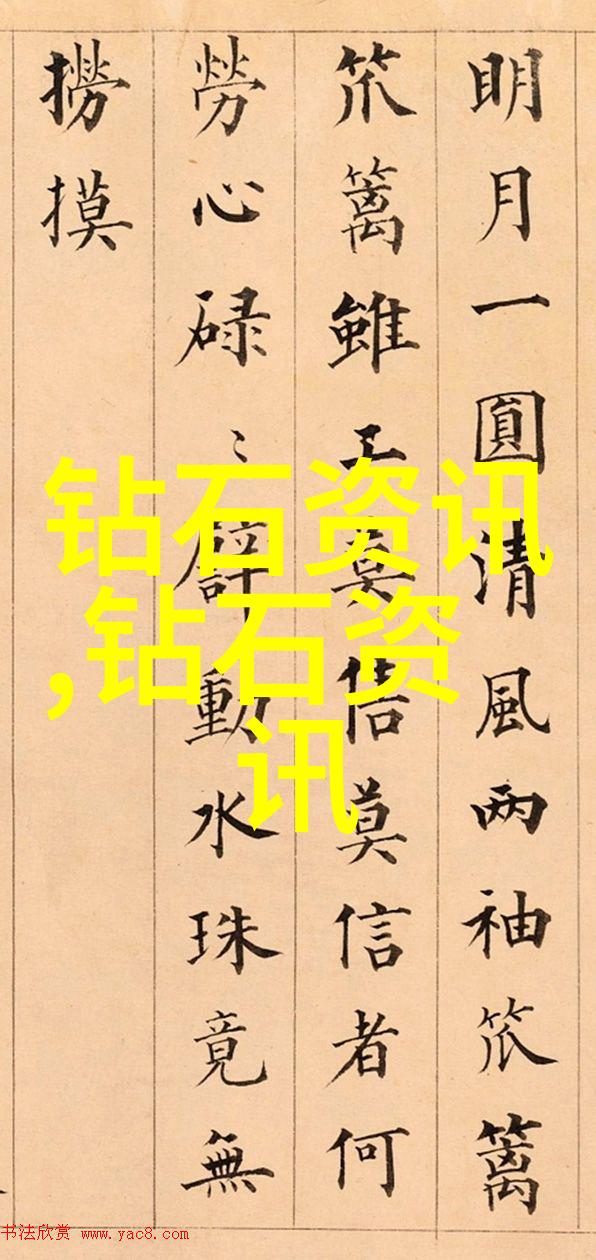 明月一圓清風两袖笊籬
笊籬雖工莫信莫信者何
勞心碌〻動水珠竟無
撈摸
钻石资讯
,钻石资
讯
书法欣赏 www.yac8.com